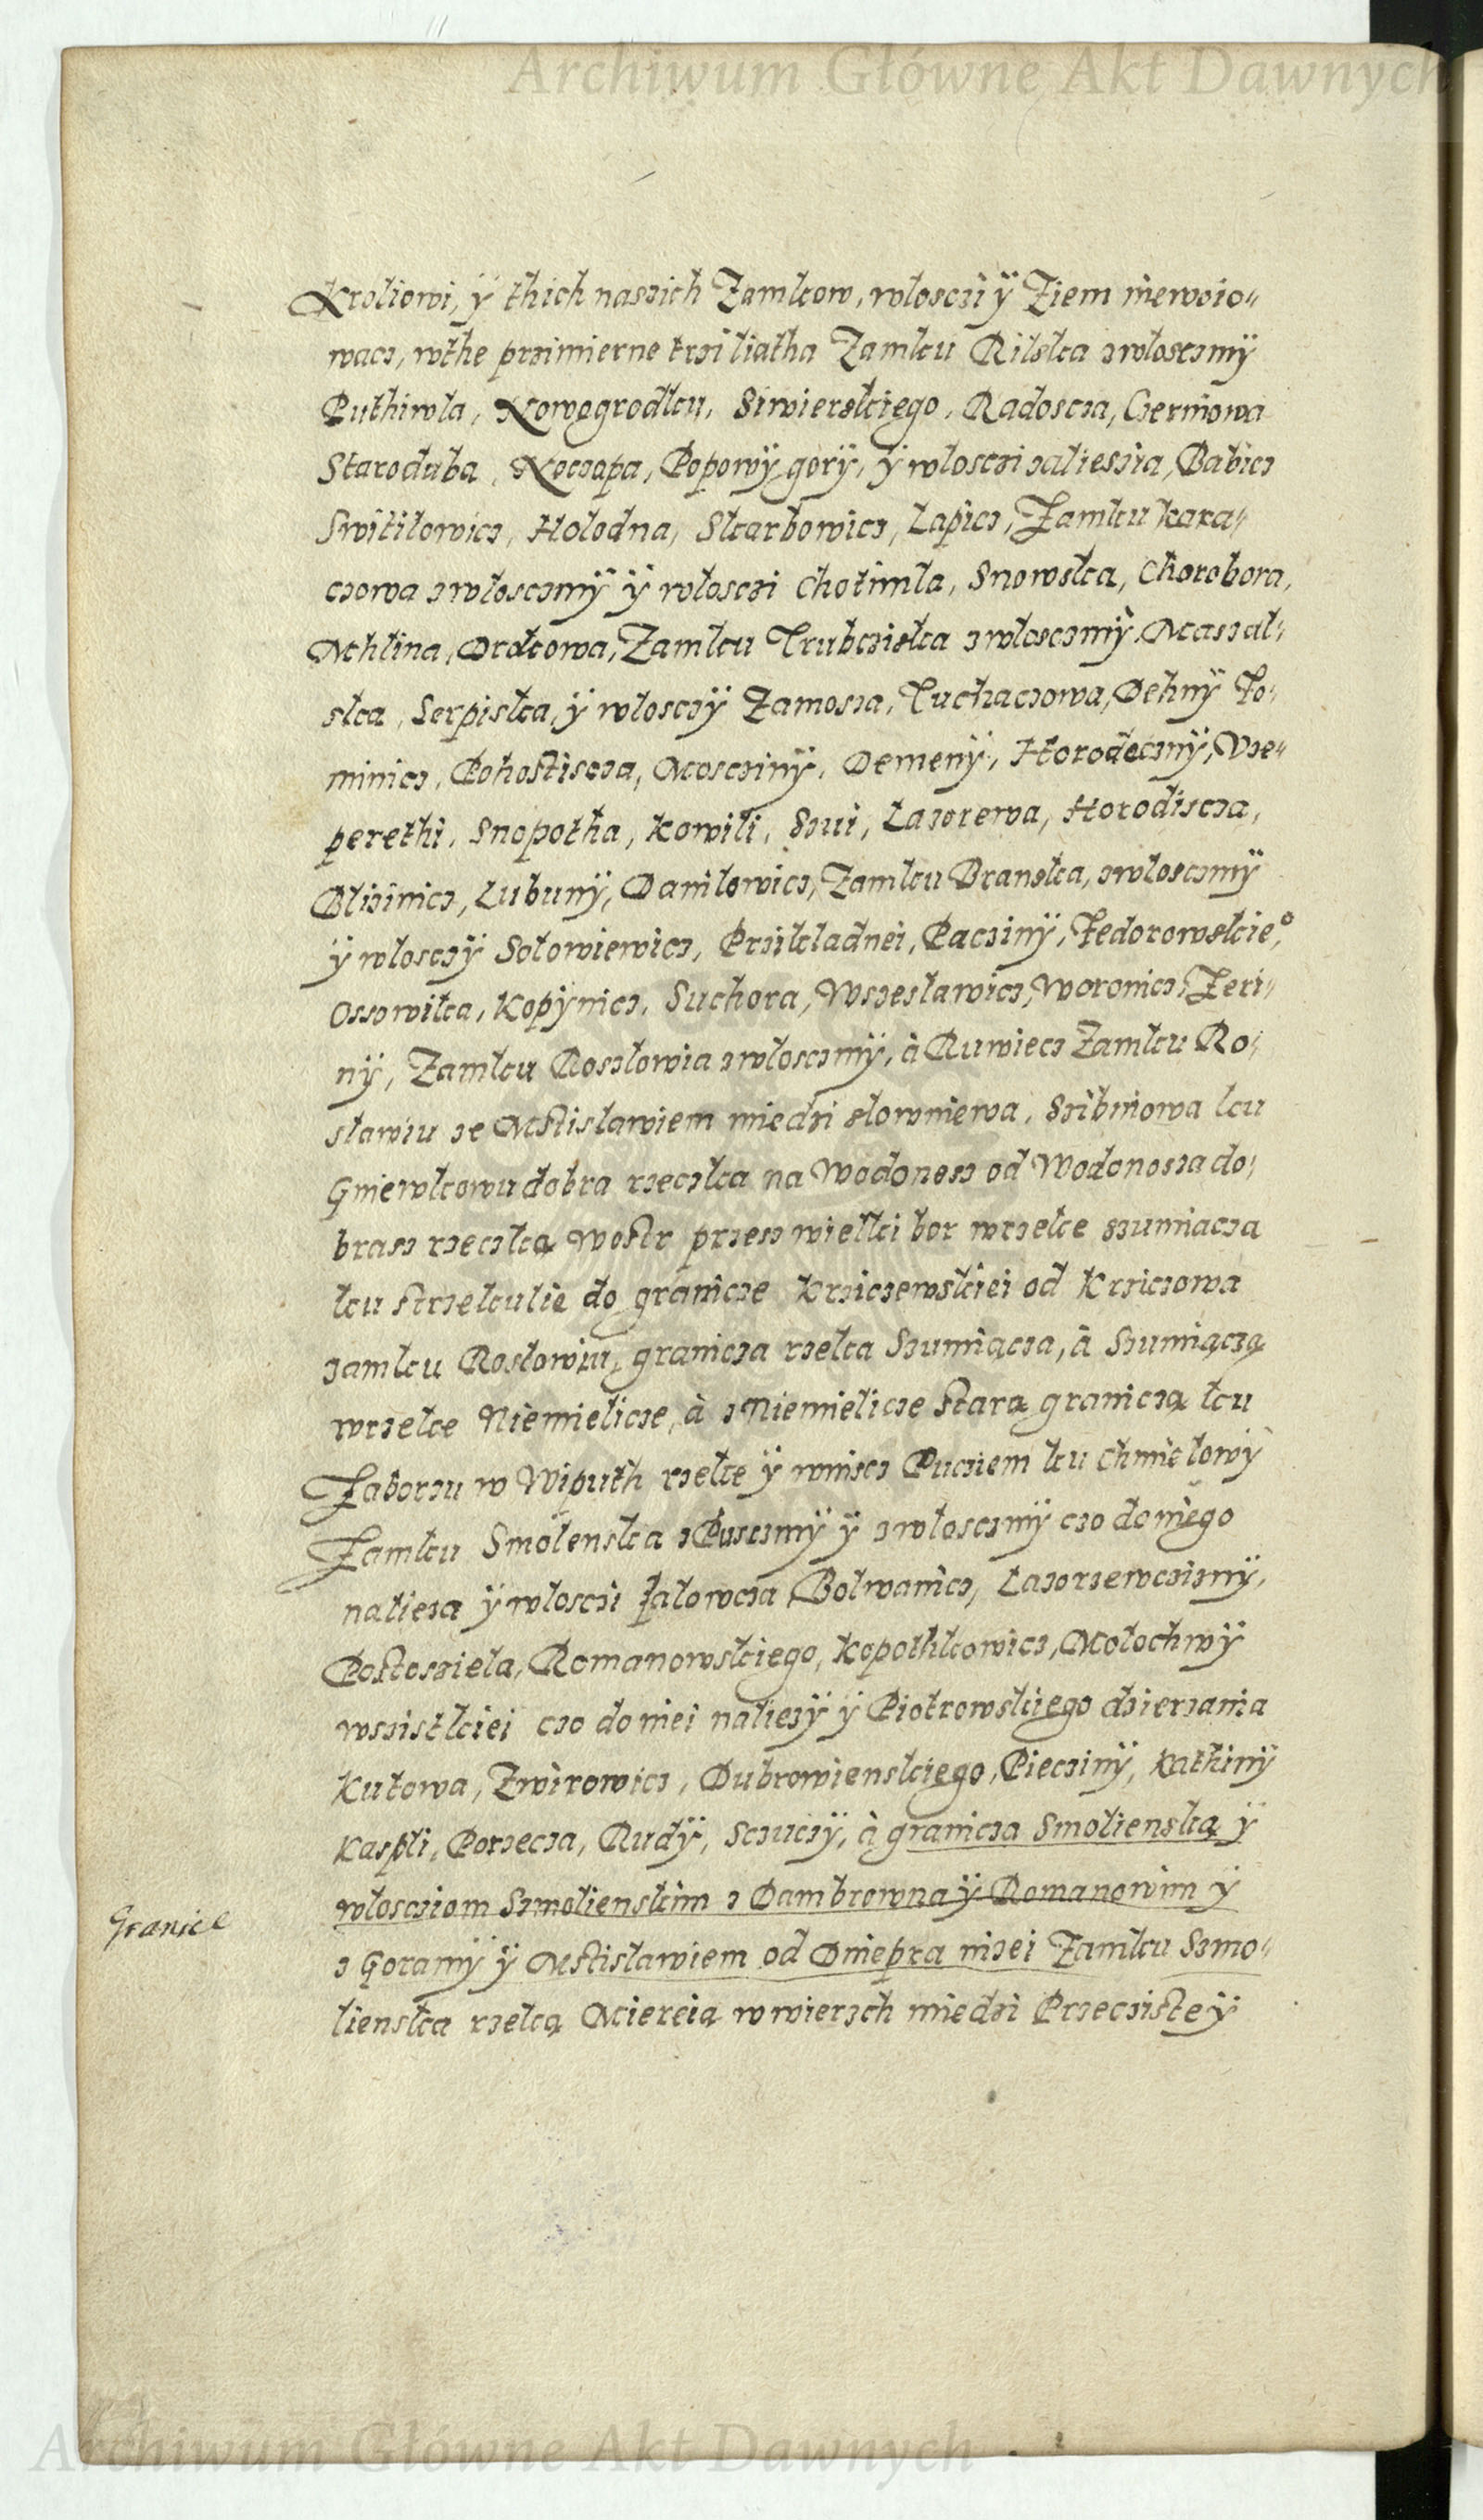 Archiwum Główne Akt Dawnych
Kroliowi, ÿ thich naszich Zamkow, wlosczi ÿ Ziem niewoio„
wacz, wthe przimierne trzi liatha Zamku Rilska zwlosczmÿ
Puthiwla, Nowogrodku, Siwierskiego, Radoscza, Czerniowa
Staroduba, Koczapa, Popowÿ gorÿ, ÿ wlosczi zalieszia, Babicz
Switilowicz, Holodna, Skarbowicz, Lapicz, Zamku Kara„
czowa zwlosczmÿ ÿ wlosczi Chotimla, Snowska, Chorobora,
Mhlina, Drokowa, Zamku Trubcziska zwlosczmÿ Maszal„
ska, Serpiska, ÿ wlosczÿ Zamosza, Tuchaczowa, Dehnÿ Fo„
minicz, Pohostiscza, Moscziny, Demenÿ, Horodecznÿ, Vze„
perethi, Snopotha, Kowili, Szui, Lazorewa, Horodiscza,
Blizinicz, Lubunÿ, Danilowicz, Zamku Branska, zwlosczmÿ
ÿ wlosczÿ Solowiewicz, Przikladnei, Paczinÿ, Fedorowskie°,
Ossowika, Kopÿnicz, Suchora, Wszeslawicz, Woronicz, Zeri„
nÿ, Zamku Roszlowia zwlosczmÿ, à Ruwiecz Zamku Ro„
slawiu ze Mstislawiem miedzi slowniewa, Szibniowa ku
Gniewkowu dobra rzeczka na Wodonosz od Wodonosza do„
brasz rzeczką Wostr przesz wielki bor wrzeke szumiacza
ku strzelkulie do granicze Krziczewskiei od Krziczowa
zamku Roslowiu, granicza rzeka Szumiącza, à Szumiączą
wrzeke Niemielicze, à z Niemielicze starą graniczą ku
Zaborzu w Wiputh rzeke ÿ wnisz Puciem ku Chmielowÿ
Zamku Smolenska z Pusczmÿ ÿ zwlosczmÿ czo doniego
nalieza ÿ wlosczi Jalowcza, Bolwanicz, Lazorzewcziznÿ,
Postoziela, Romanowskiego, Kopothkowicz, Molochwÿ
wszistkiei czo do niei naliezÿ ÿ Piotrowskiego dzierzania
Kutowa, Zwirowicz, Dubrowienskiego, Pieczinÿ, Kathinÿ
Kaspli, Porzecza, Rudÿ, Sczuczÿ, à granicza Smolienską ÿ
wlosciom Szmolienskim z Dambrowna ÿ Romanowim ÿ
z Goramÿ ÿ Mstislawiem od Dniepra niżei Zamku Szmo„
Granice
lienska rzeką Miereią wwierzch miedzi Przeczisteÿ
Archiwum Główne Akt Dawnych